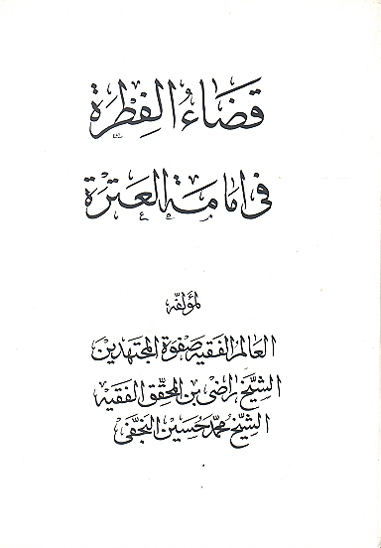 قضاء الفطرة
في امامة العترة
لمؤلفه
العالم الفقيه صفوة المجتهدين
الشيخ راضي بن المحقق الفقيه
الشيخ محمد حسين النجفي